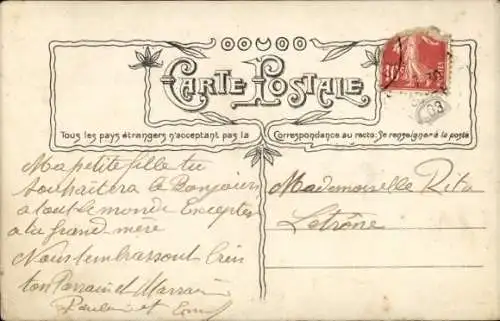 CARTE POSTALE
Tous les pays étrangers n'acceptant pas la Correspondance au recto: Se renseigner à la poste
Ma petite fille tu
souhaitra le Bonjour
a tout le monde Excepter
a ta grand mère
Nous t'embrassont bien
ton Parrain et Marraine
Paulin et
Mademoiselle Rita
Letrône
10